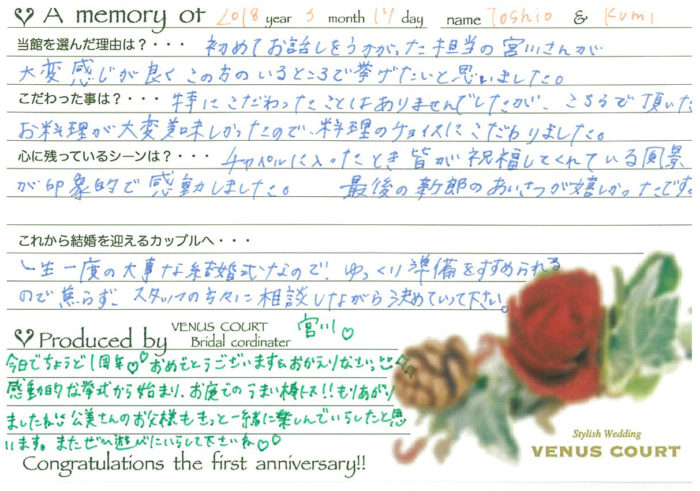 ♡ A memory of 2018 year 3 month 17 day name Toshio & Kumi
当館を選んだ理由は？・・・ 初めてお話しをうかがった担当の宮川さんが
大変感じが良くこの方のいるところで挙げたいと思いました。
こだわった事は？・・・ 特にこだわったことはありませんでしたが、こちらで頂いた
お料理が大変美味しかったので、料理のチョイスにこだわりました。
心に残っているシーンは？・・・ チャペルに入ったとき皆が祝福してくれている風景
が印象的で感動しました。 最後の新郎のあいさつが嬉しかったです
これから結婚を迎えるカップルへ・・・
一生一度の大事な結婚式なので、ゆっくり準備をすすめられる
ので焦らず、スタッフの方々に相談しながら決めていって下さい。
♡ Produced by VENUS COURT Bridal cordinater 宮川♡
今日でちょうど1周年♡♡おめでとうございます&おかえりなさい
感動的な挙式から始まり、お庭でのうまい棒トス!!もりあがり
ましたね 公美さんのお父様もきっと一緒に楽しんでいらしたと思
います。またぜひ遊びにいらして下さいね♡♡
Congratulations the first anniversary!!
Stylish Wedding
VENUS COURT